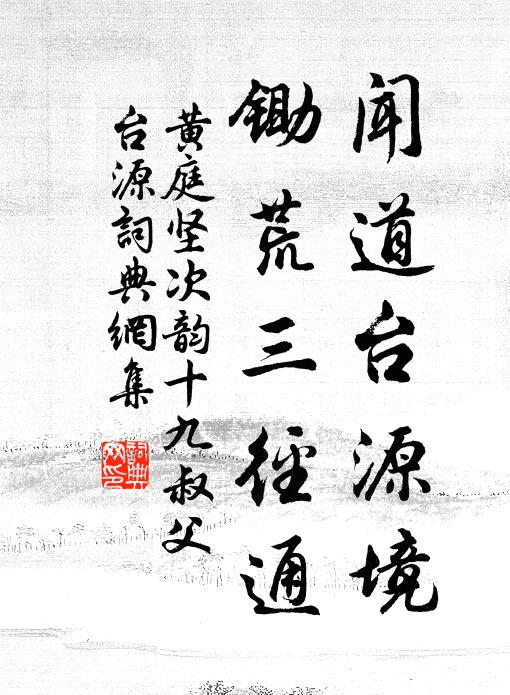 闻道台源境
锄荒三径通
黄庭坚次韵十九叔父
台源詞典網集
詞典